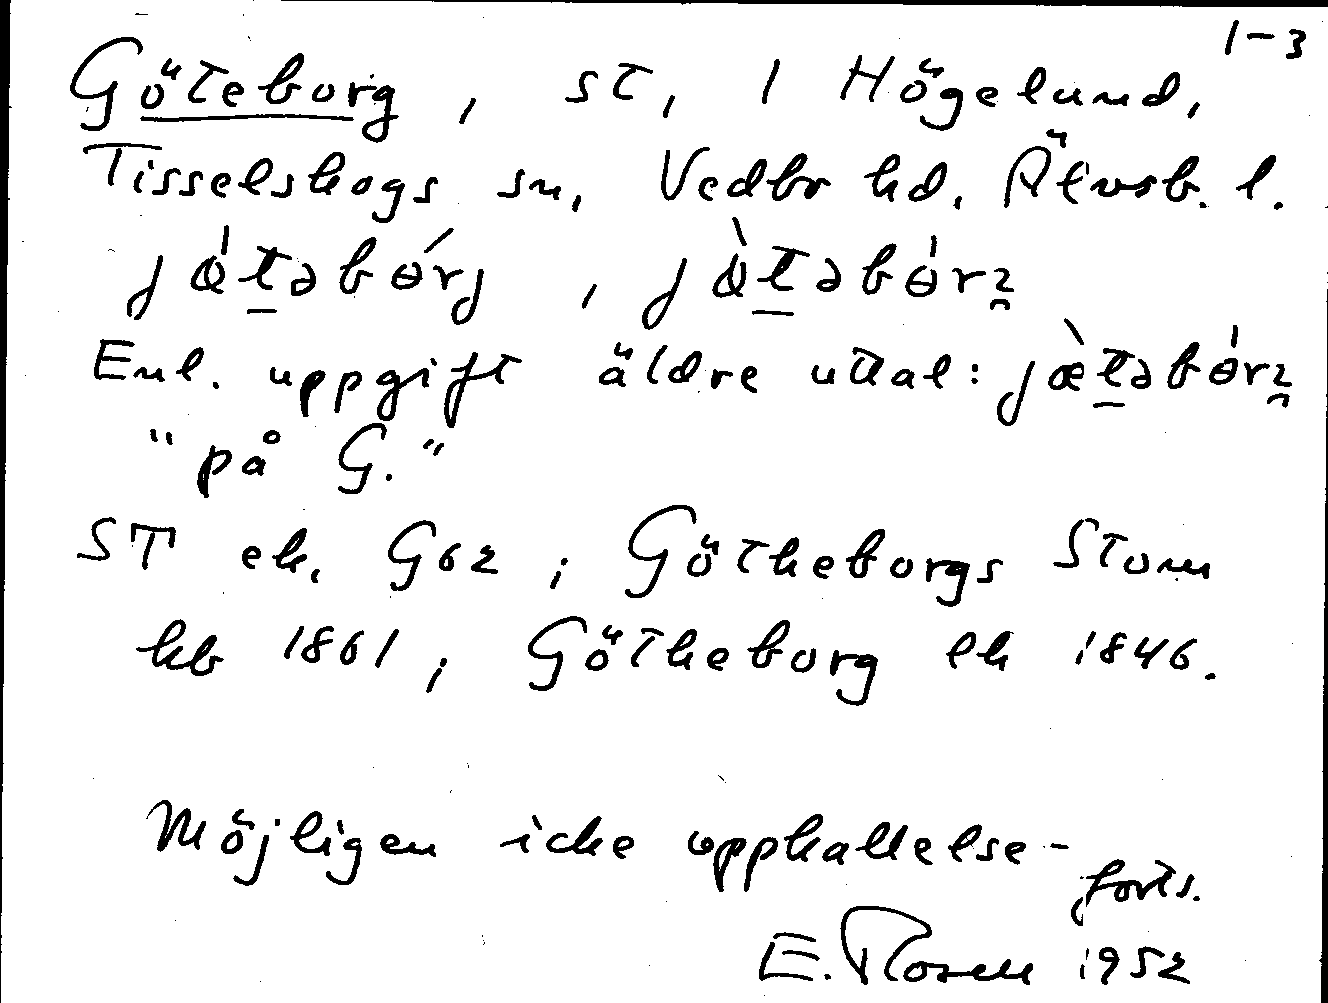 1-3
Göteborg, st, / Högelund,
Tisselskogs sn, Vedbo hd. Älvsb. l.
Enl. uppgift äldre uttal:
"på G."
ST ek. G62; Götheborgs Stom
kb 1861; Götheborg ek 1846.
Möjligen icke uppkallelse-
forts.
E. Rosell 1952